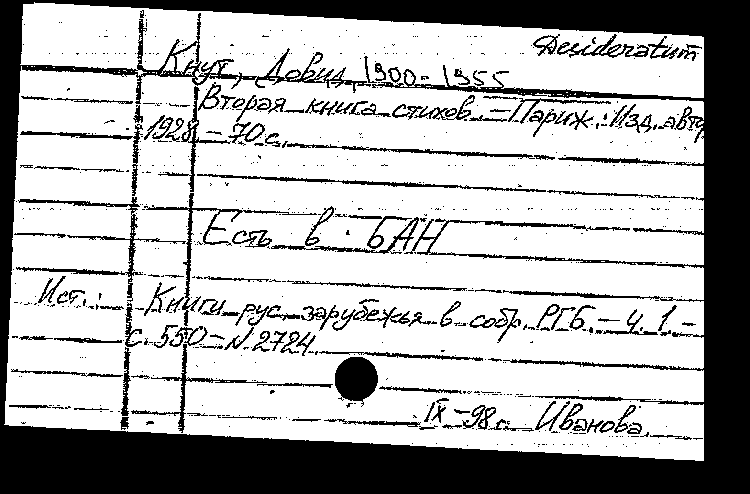 Desideratum
Кнут, Довид, 1900-1955
Вторая книга стихов. – Париж: Изд. авт.
1928. – 70 с.
Есть в БАН
Ист.: Книги рус. зарубежья в собр. РГБ. – ч. 1. –
с. 550 – N 2724
IX-98 г. Иванова.